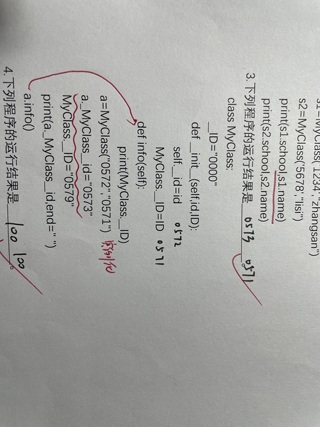 s1=MyClass("1234","zhangsan")
s2=MyClass("5678","lisi")
print(s1.school,s1.name)
print(s2.school,s2.name)
3.下列程序的运行结果是 0573 0571
class MyClass:
__ID="0000"
def __init__(self,id,ID):
self.__id=id 0572
MyClass.__ID=ID 0571
def info(self):
print(MyClass.__ID)
a=MyClass("0572","0571") 实例化
a._MyClass__id="0573"
MyClass.__ID="0579"
print(a._MyClass__id,end=" ")
a.info()
4.下列程序的运行结果是 100 100